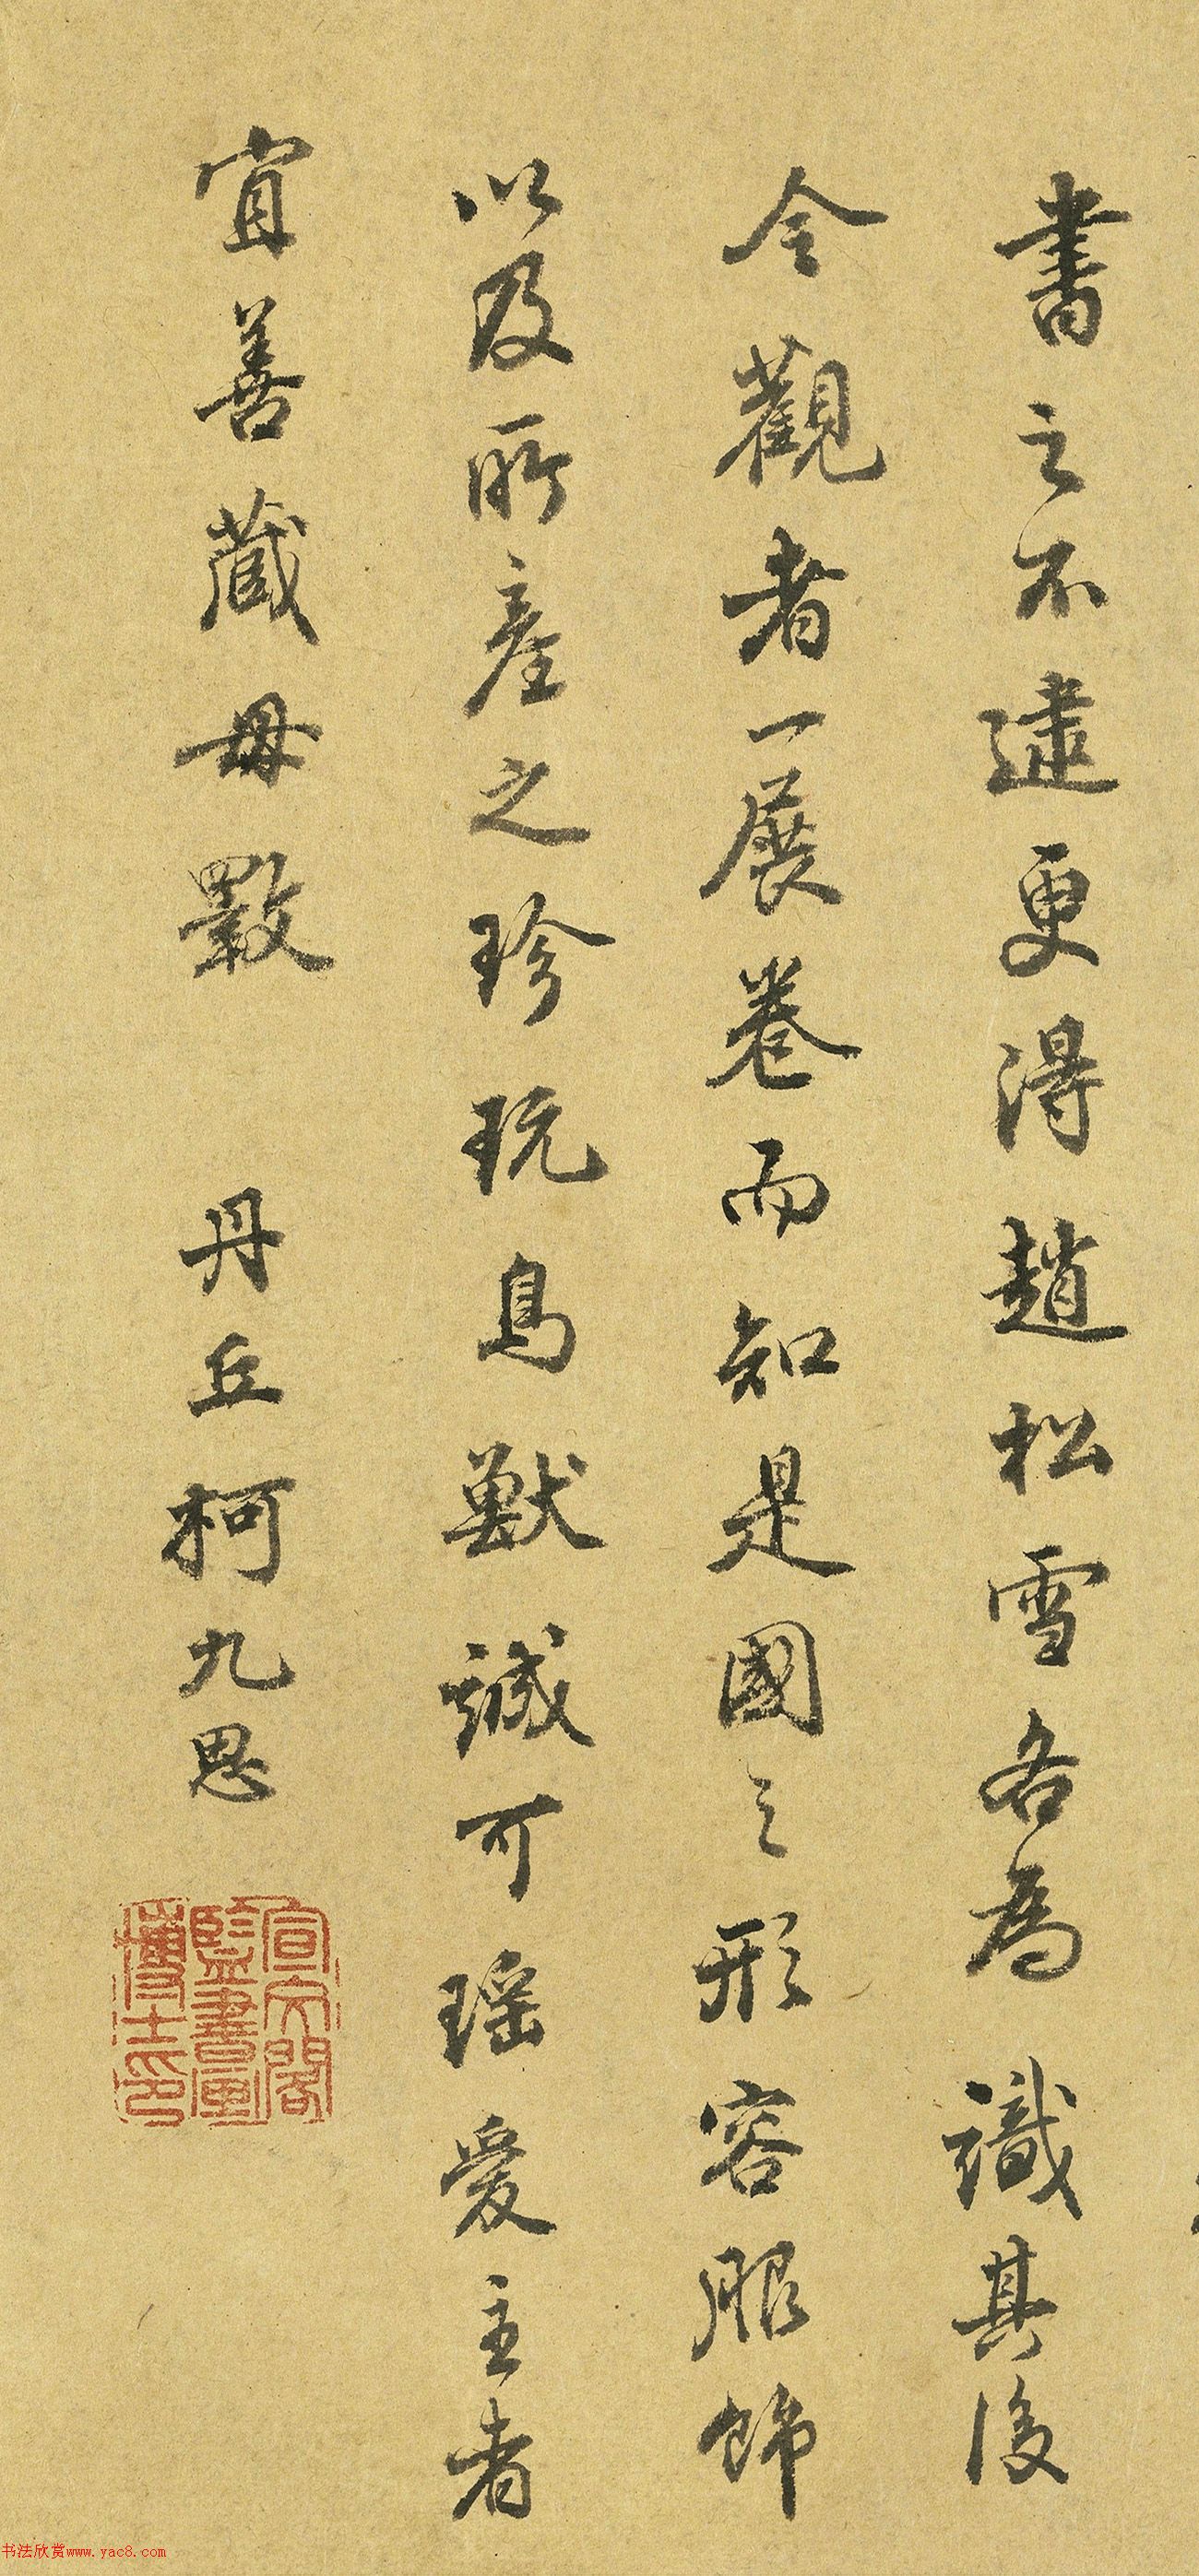 書之不逮更得趙松雪各為識其後
令觀者一展卷而知是國之形容服飾
以及所產之珍玩鳥獸誠可瑶愛主者
宜善藏毋斁
丹丘柯九思
宣文閣
監書畫
博士印
书法欣赏www.yac8.com